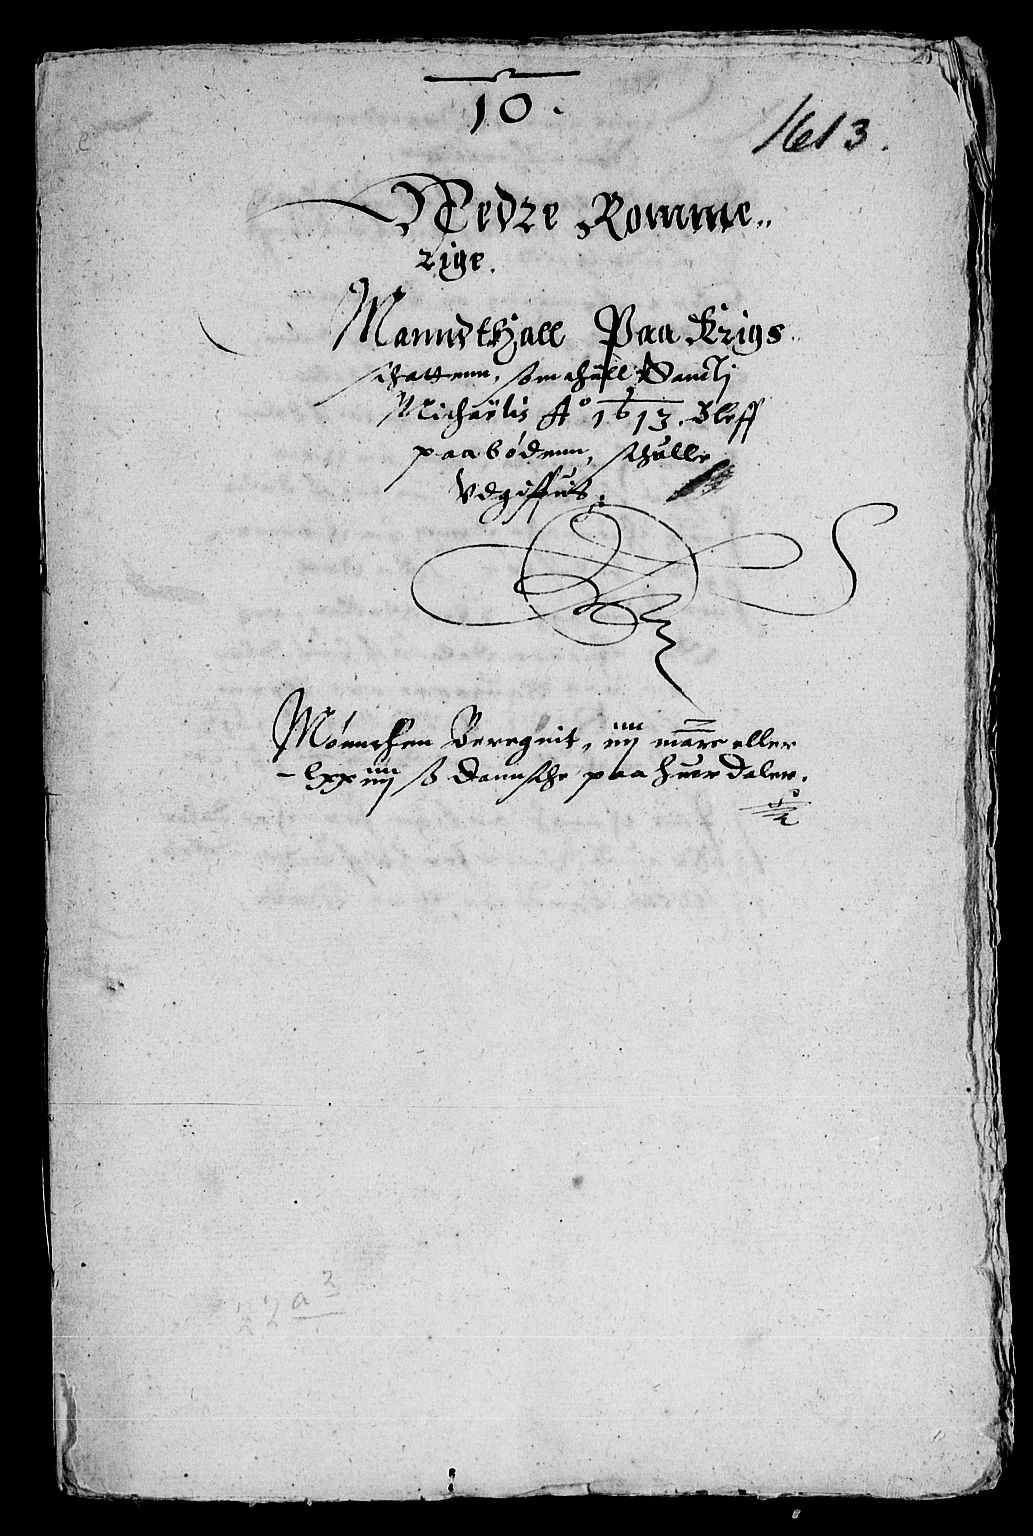 10.
1613.
Nedre Romme„
rige.
Manndthall Paa Krigs„
schattenn, som thill Sanctj
Michaëlis A° 1613. Bleff
paabödenn, schulle
Vdgiffuis.
Möenthen Beregnit, iiij marc eller
lxxiiij ß Dannsche paa huer Daler.
22 a 3